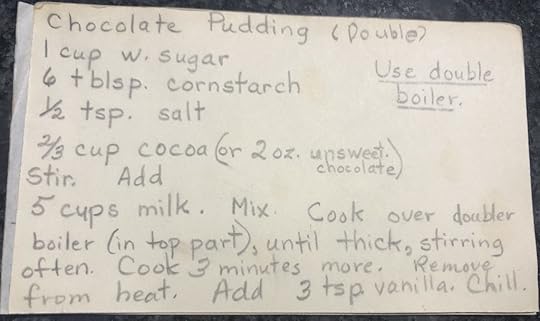 Chocolate Pudding (Double)
1 cup w. sugar
6 tblsp. cornstarch
Use double
boiler.
1/2 tsp. salt
2/3 cup cocoa (or 2 oz. unsweet. chocolate)
Stir. Add
5 cups milk. Mix. Cook over doubler
boiler (in top part), until thick, stirring
often. Cook 3 minutes more. Remove
from heat. Add 3 tsp vanilla. Chill.